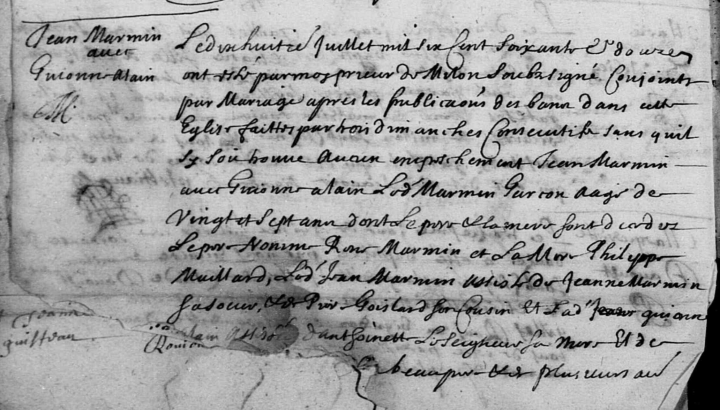 Jean Marmin
avec
Guionne alain
M
Le dixhuitie Juillet mil six cent soixante & douze
ont esté par moy prieur de Milon soubsigné conjoints
par Mariage apres les publicaons des bans dans cette
Eglise faittes par trois dimanches consecutifs sans quil
sy soit trouve aucun empeschement Jean Marmin
avec Guionne alain Led Marmin Garcon aagé de
Vingt et sept ans dont le pere & la mere sont decedez
Le pere Nomme Rene Marmin et La Mere Philippe
Maillard, Led Jean Marmin assisté de Jeanne Marmin
sa soeur, & de Goislard son Cousin Et Lad
alain assistée danthoinette Leseigneur sa mere Et de
beaupere & de plusieurs au
Jeanne